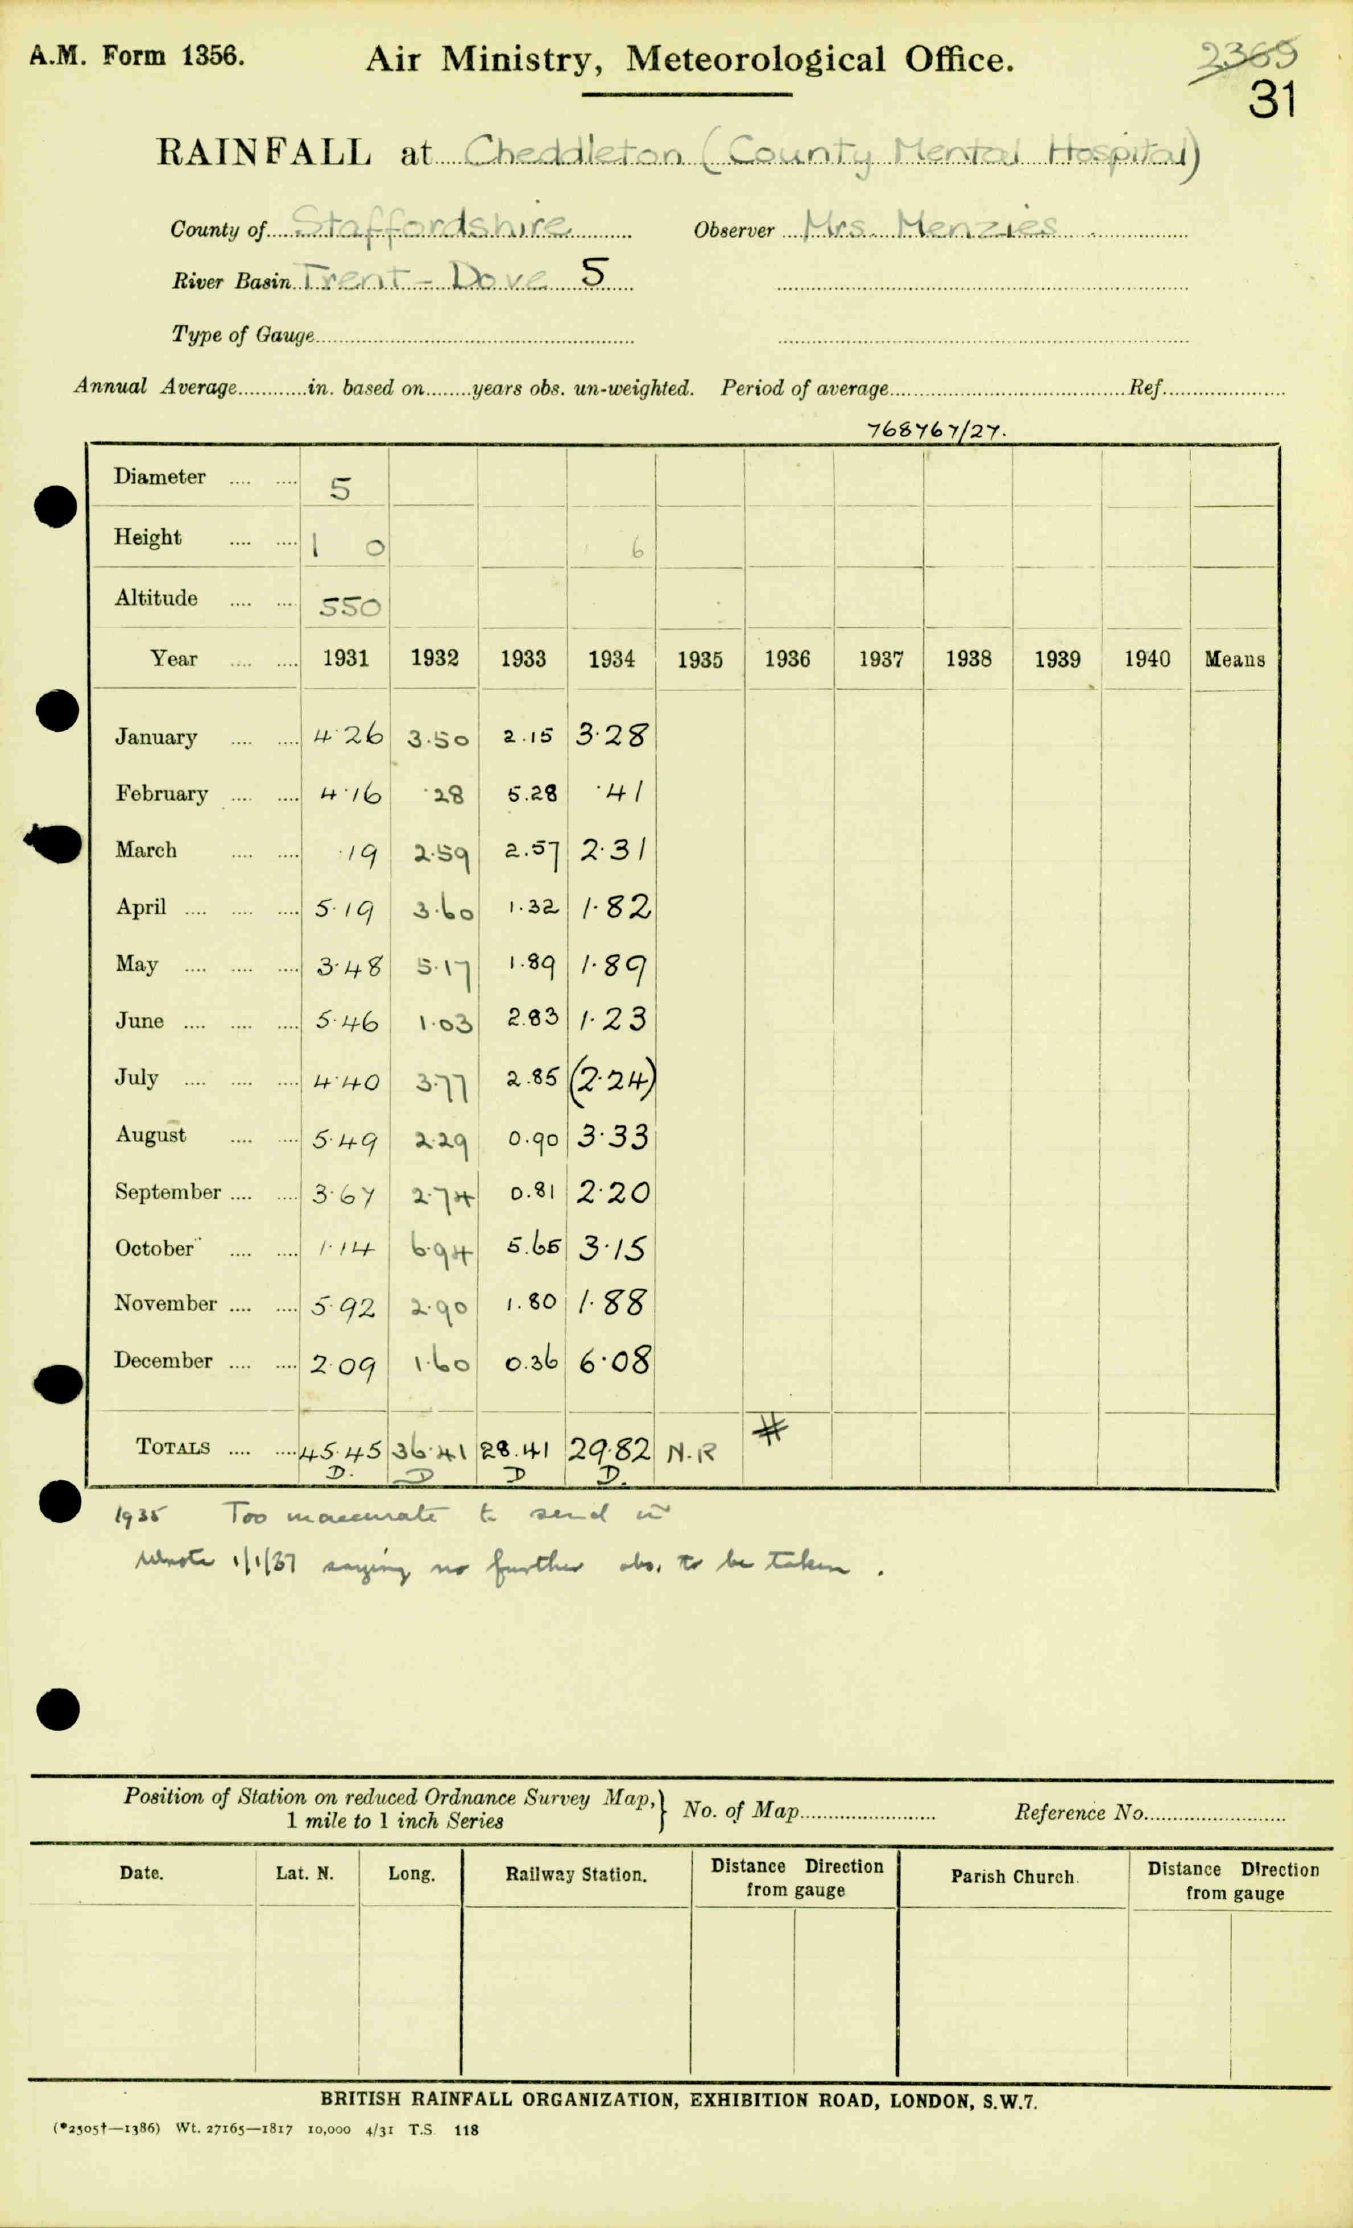 A.M. Form 1356. Air Ministry, Meteorological Office. 2369
31
RAINFALL at Cheddleton (County Mental Hospital)
County of Staffordshire Observer Mrs. Menzies
River Basin Trent - Dove 5
Type of Gauge
Annual Average in. based on years obs. un-weighted. Period of average Ref.
768767/27.
Diameter 5
Height 1 0 6
Altitude 550
Year 1931 1932 1933 1934 1935 1936 1937 1938 1939 1940 Means
January 4.26 3.50 2.15 3.28
February 4.16 .28 5.28 .41
March .19 2.59 2.57 2.31
April 5.19 3.60 1.32 1.82
May 3.48 5.17 1.89 1.89
June 5.46 1.03 2.83 1.23
July 4.40 3.77 2.85 (2.24)
August 5.49 2.29 0.90 3.33
September 3.67 2.74 0.81 2.20
October 1.14 6.94 5.65 3.15
November 5.92 2.90 1.80 1.88
December 2.09 1.60 0.36 6.08
TOTALS 45.45 36.41 28.41 29.82 N.R #
D. D D D.
1935 Too inaccurate to send in
Wrote 1/1/37 saying no further obs. to be taken.
Position of Station on reduced Ordnance Survey Map, } No. of Map Reference No.
1 mile to 1 inch Series
Date. Lat. N. Long. Railway Station. Distance Direction from gauge Parish Church. Distance Direction from gauge
BRITISH RAINFALL ORGANIZATION, EXHIBITION ROAD, LONDON, S.W.7.
(*2505†—1386) Wt. 27165—1817 10,000 4/31 T.S. 118